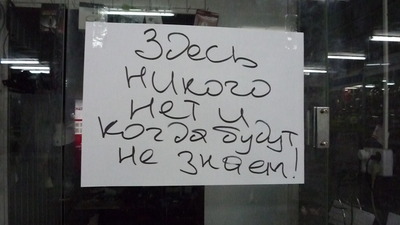 Здесь
никого
нет и
когда будут
не знаем!